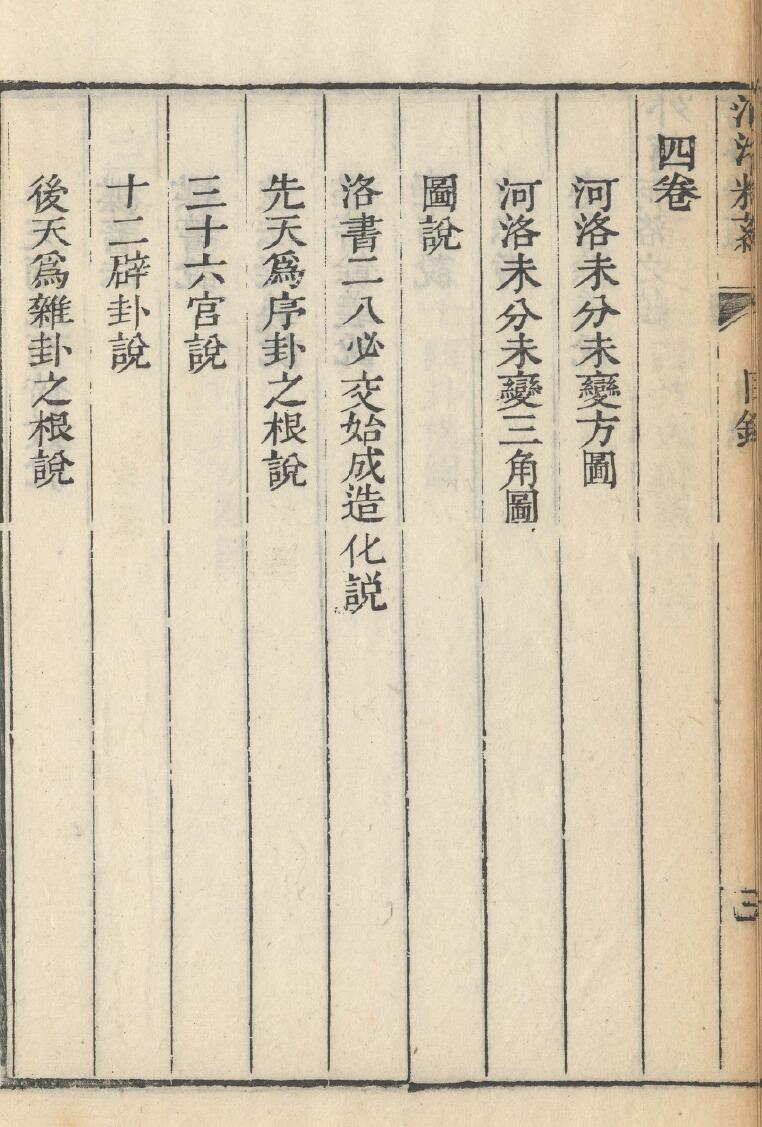 河洛精蘊 目錄 三
四卷
河洛未分未變方圖
河洛未分未變三角圖
圖説
洛書二八必交始成造化説
先天爲序卦之根說
三十六宮說
十二辟卦説
後天爲雜卦之根說